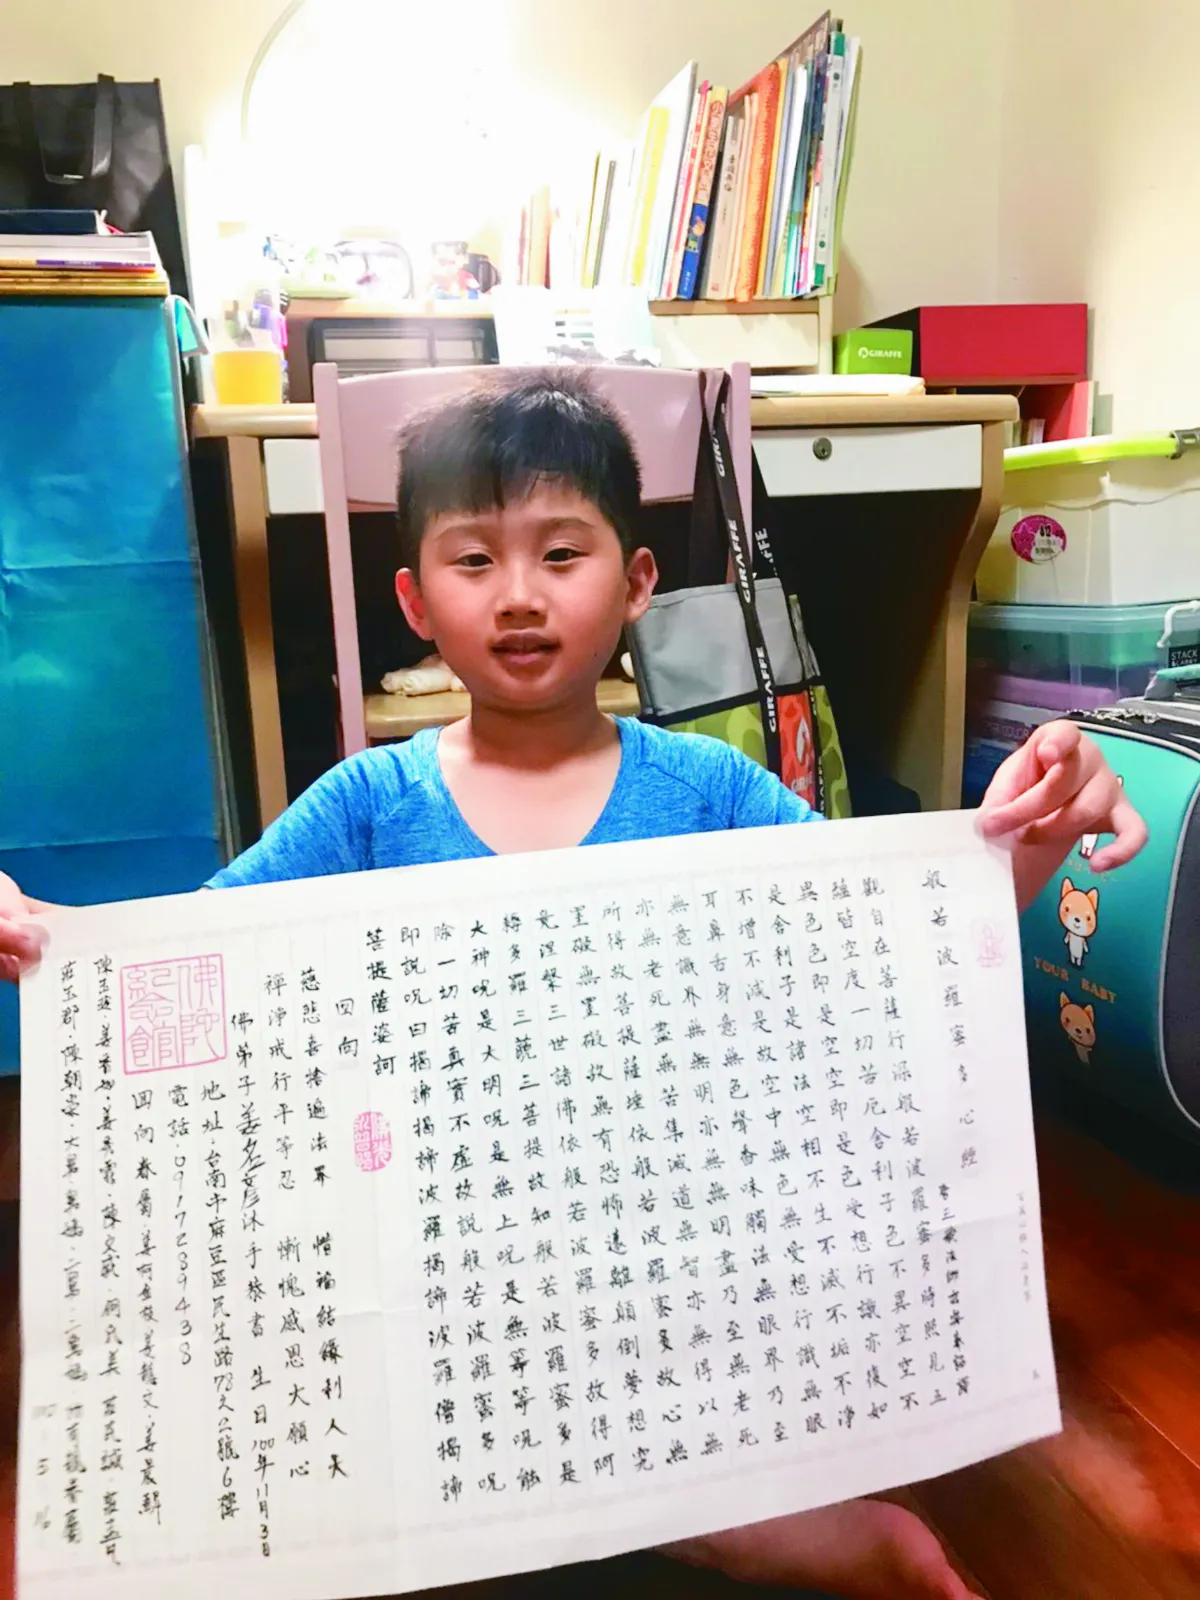 般若波羅蜜多心經 唐三藏法師玄奘奉詔譯
觀自在菩薩行深般若波羅蜜多時照見五
蘊皆空度一切苦厄舍利子色不異空空不
異色色即是空空即是色受想行識亦復如
是舍利子是諸法空相不生不滅不垢不淨
不增不減是故空中無色無受想行識無眼
耳鼻舌身意無色聲香味觸法無眼界乃至
無意識界無無明亦無無明盡乃至無老死
亦無老死盡無苦集滅道無智亦無得以無
所得故菩提薩埵依般若波羅蜜多故心無
罣礙無罣礙故無有恐怖遠離顛倒夢想究
竟涅槃三世諸佛依般若波羅蜜多故得阿
耨多羅三藐三菩提故知般若波羅蜜多是
大神呪是大明呪是無上呪是無等等呪能
除一切苦真實不虛故說般若波羅蜜多呪
即說呪曰揭諦揭諦波羅揭諦波羅僧揭諦
菩提薩婆訶
回向
慈悲喜捨遍法界 惜福結緣利人天
禪淨戒行平等忍 慚愧感恩大願心
佛弟子姜名彥沐手恭書 生日100年11月3日
地址:台南市麻豆區民生路78之2號6樓
電話:0917289438
回向眷屬
佛陀紀念館
GIRAFFE
GIRAFFE
GIRAFFE
STACK
YOUR BABY